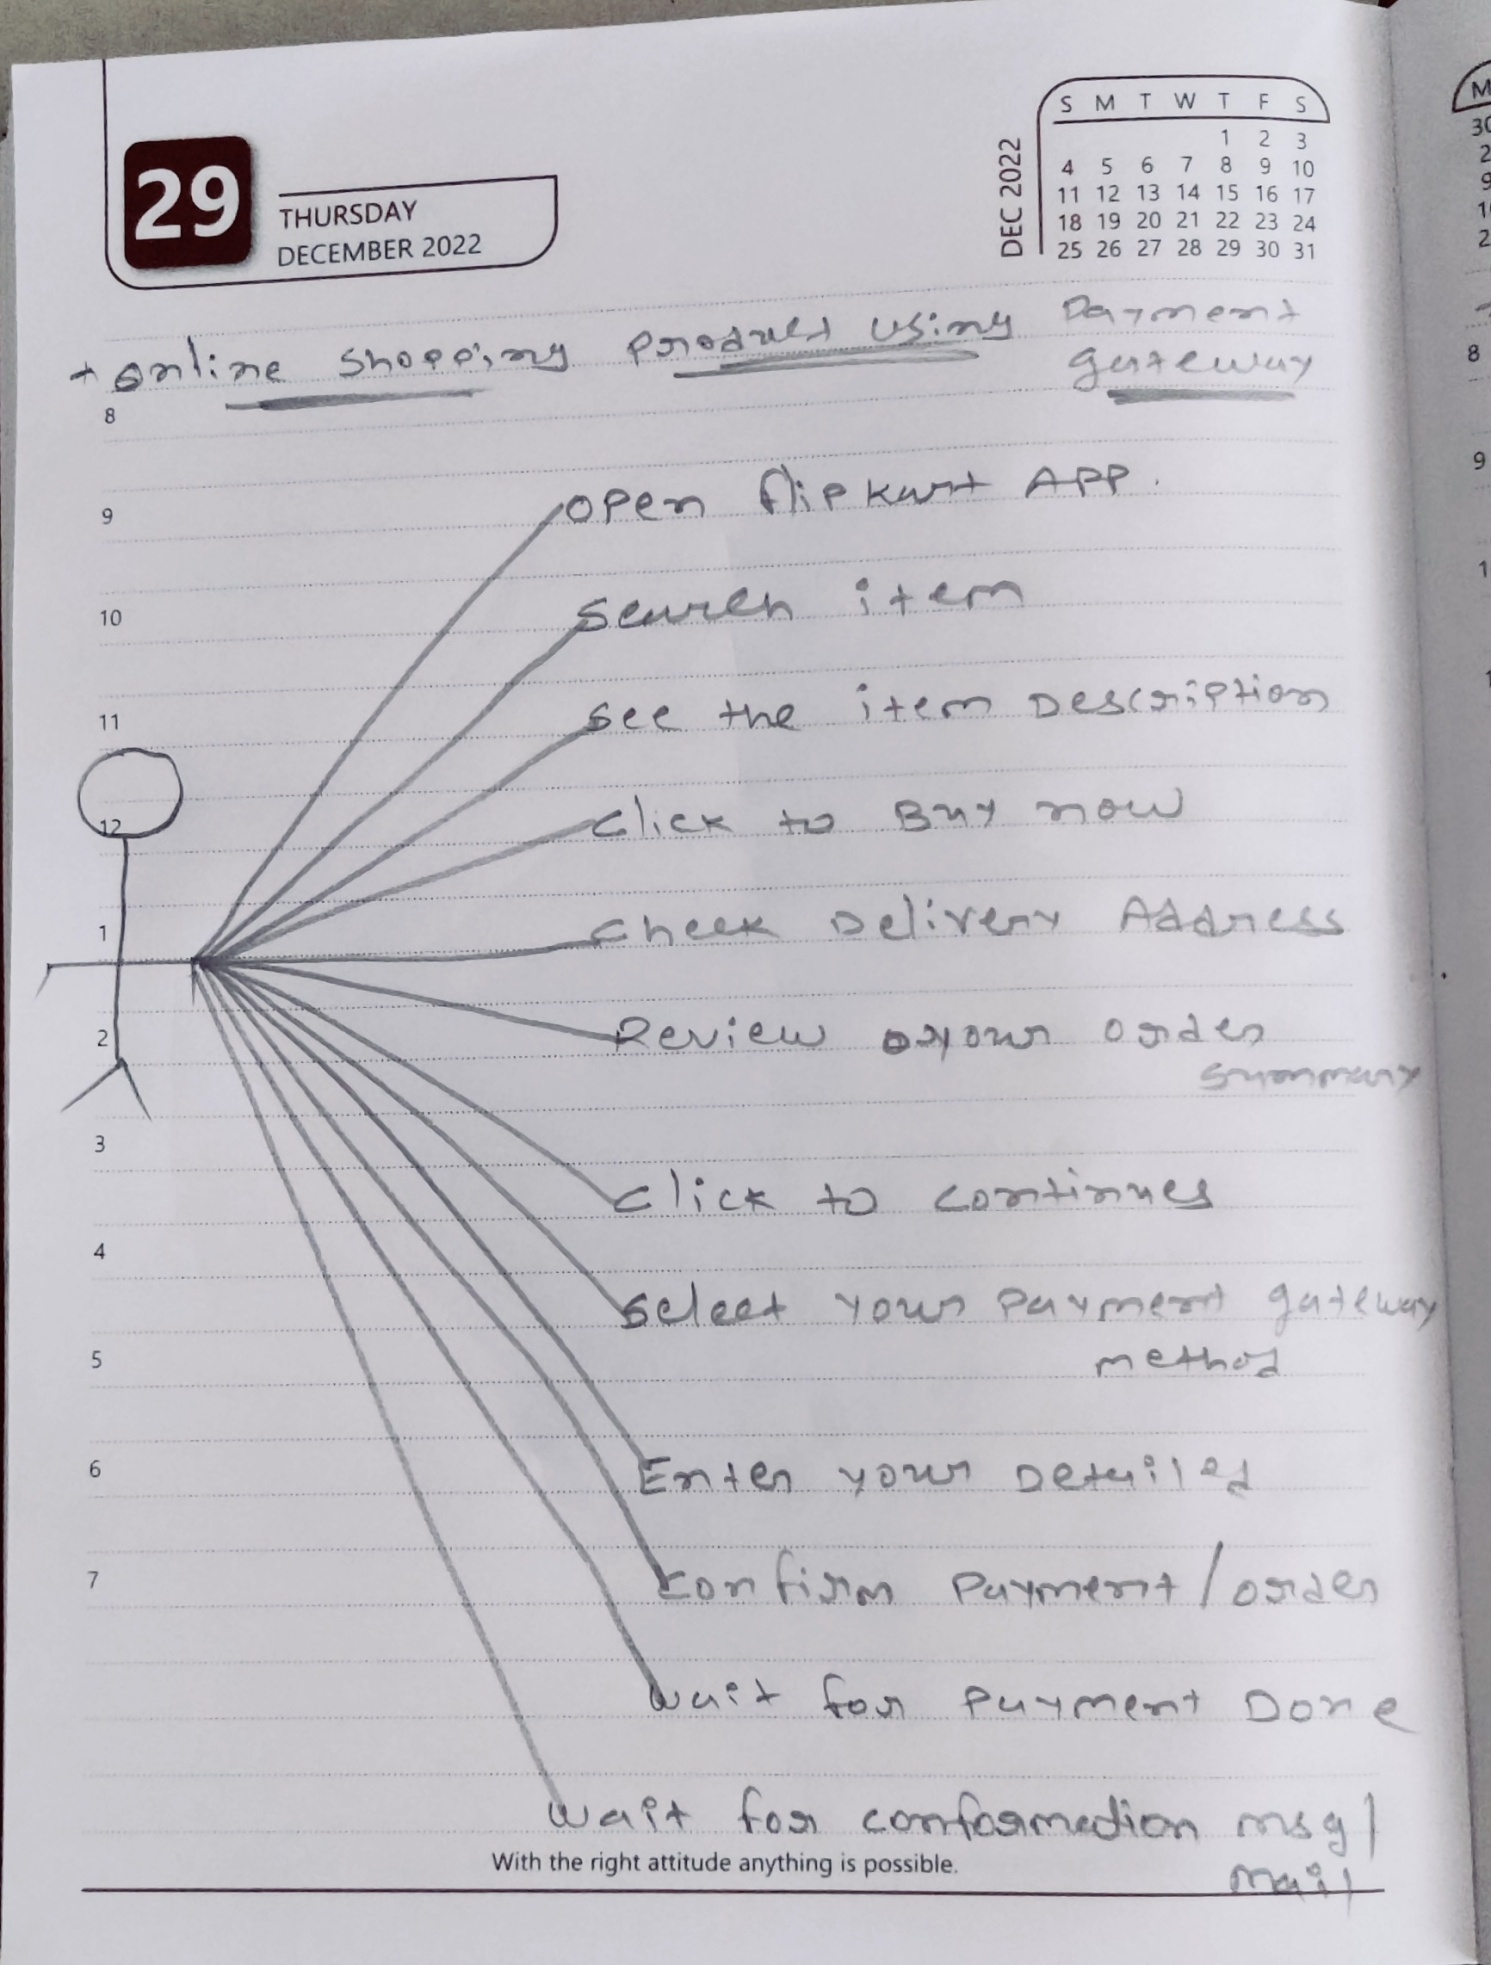 29
THURSDAY
DECEMBER 2022
DEC 2022
S M T W T F S
1 2 3
4 5 6 7 8 9 10
11 12 13 14 15 16 17
18 19 20 21 22 23 24
25 26 27 28 29 30 31
+ online shopping product using Payment
gateway
8
9 open flipkart APP.
10 search item
11 see the item Description
12 click to Buy now
1 check Delivery Address
2 Review your order
summary
3 click to continues
4 select your payment gateway
5 method
6 Enter your Detailed
7 confirm Payment / order
wait for Payment Done
wait for conformation msg /
mail
With the right attitude anything is possible.
M
30
8
9